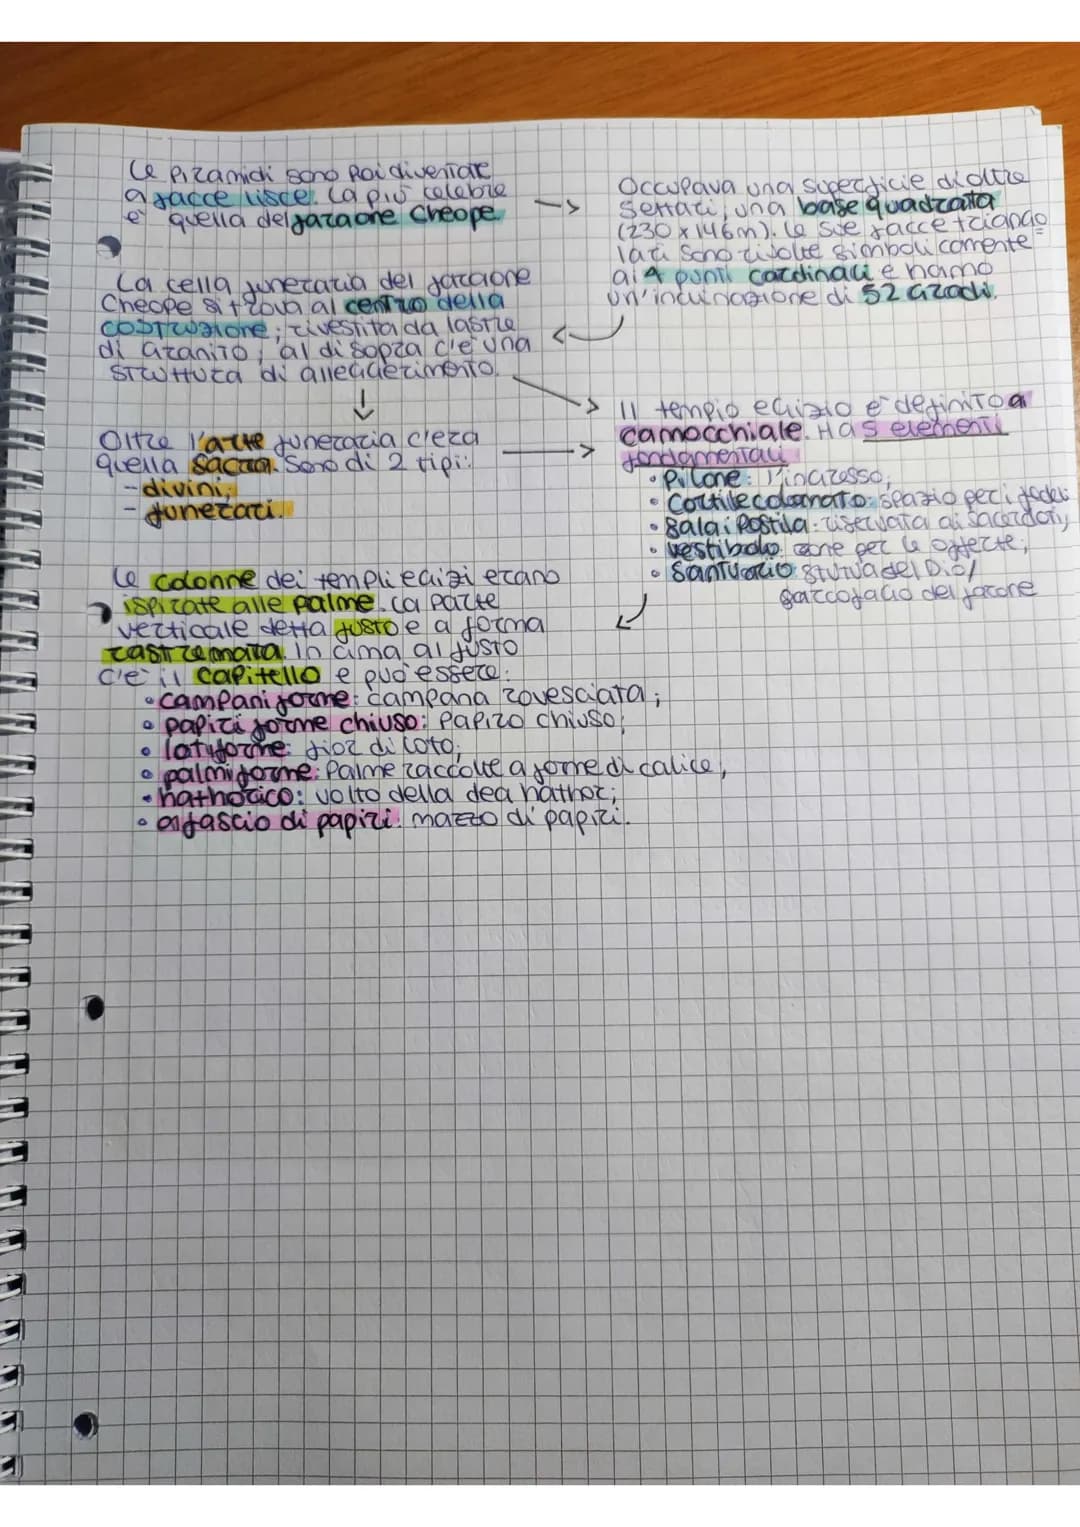 Le piramidi sono poi diventate
a facce lisce. La più celebre
e' quella del faraone Cheope
->
Occupava una superficie di oltre
5ettari, una base quadrata
(230 x 146m). Le sue facce triango=
lari sono rivolte simbolicamente
ai 4 punti cardinali e hanno
un'inclinazione di 52 gradi.
La cella funeraria del faraone
Cheope si trova al centro della
costruzione; rivestita da lastre
di granito; al di sopra c'e' una
struttura di alleggerimento.
Oltre l'arte funeraria c'era
quella sacra. Sono di 2 tipi:
- divini;
- funerari.
Il tempio egizio e' definito a
camocchiale. Ha 5 elementi
fondamentali
• Pilone: l'ingresso,
• Cortile colonnato: spazio per i fedeli
• Sala i postila: riservata ai sacerdoti,
• vestibolo: zone per le offerte;
• Santuario: statua del Dio/
sarcofago del farone
Le colonne dei templi egizi erano
ispirate alle palme. La parte
verticale detta fusto e a forma
rastremata. In cima al fusto
c'e' il capitello e puo' essere:
• campaniforme: campana rovesciata;
• papiriforme chiuso: papiro chiuso;
• lotiforme: fior di loto;
• palmiforme: Palme raccolte a forme di calice;
• hathorico: volto della dea hathor;
• a fascio di papiri: mazzo di papiri.